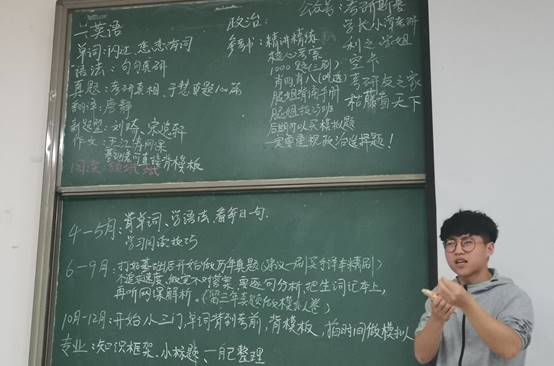 一英语
单词：闪过 恋恋有词
语法：句句真研
真题：考研真相、
翻译：唐静
新题型：刘琦、宋逸轩
作文：王江涛网课
背模板
阅读：颉斌斌
政治：
参考书：精讲精练
核心考案
1000题（三刷）
肖四肖八
腿姐背诵手册
腿姐技巧班
后期可以买模拟题
一定要重视政治选择题！
公众号：考研斯基
空卡
考研友之家
4-5月：背单词、学语法、看每日一句。
学习阅读技巧
6-9月：打好基础后开始做历年真题（建议一刷买手译本精刷）
不追求速度，做完不对答案，再逐句分析，把生词记本上，
再听网课解析。（留三年真题做模拟卷）
10月-12月：开始小三门，单词背到考前，背模板，掐时间做模拟
专业：知识框架、小标题、自己整理